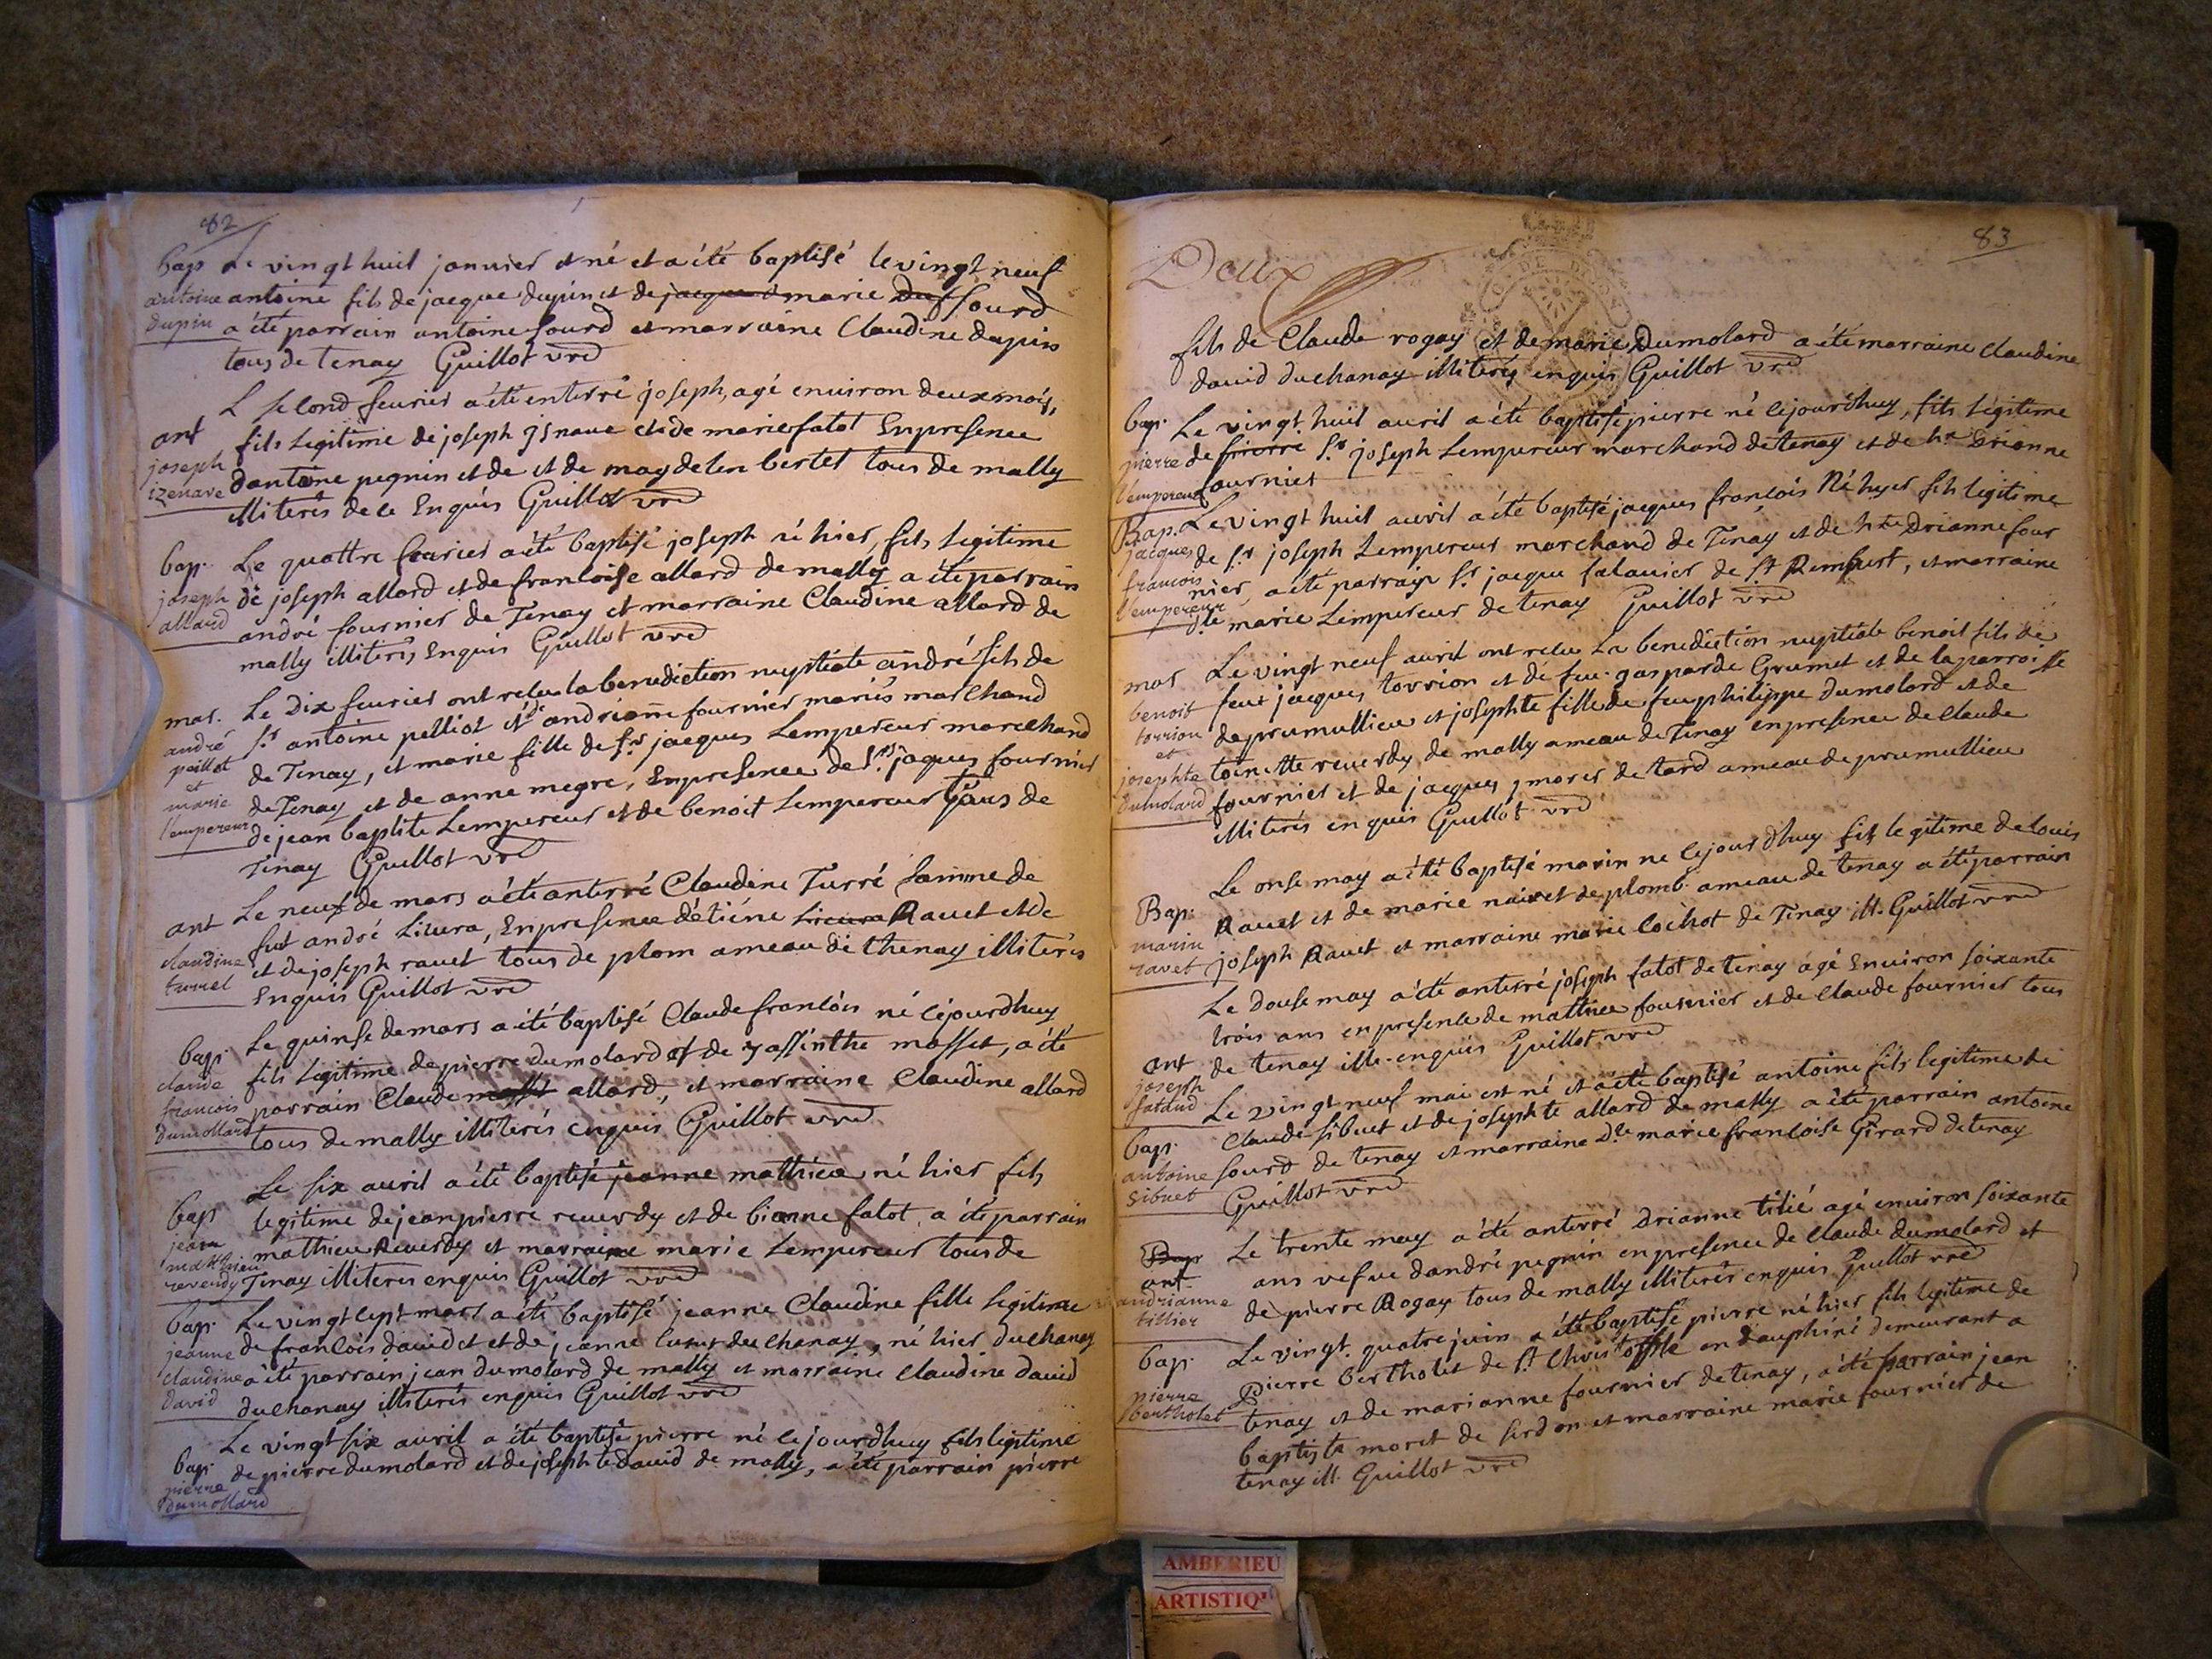 82
bap Le vingt huit januier et né et a été baptisé le vingt neuf
antoine antoine fils de jacque dupin et de jacque d marie Duf sourd
dupin a été parrain antoine sourd et marraine Claudine dupin
tous de tenay Guillot vre
L second feurier a été enterré joseph, agé enuiron deux mois,
ant fils Legitime de joseph Isnaue et de marie fatot En presence
joseph dantoine pegnin et de et de magdelen bertet tous de mally
izenave illiterés de ce Enquis Guillot vre
bap. Le quattre feurier a été baptisé joseph né hier, fils Legitime
joseph de joseph allard et de francoise allard de mally a été parrain
allard andré fournier de Tenay et marraine Claudine allard de
mally illiterés Enquis Guillot vre
mar. Le Dix feurier ont recu la benediction nuptiale andré fils de
andré Sr antoine pelliot et de andrianne fournier mariés marchand
peillot de Tenay, et marie fille de Sr jacques Lempereur marchand
et de Tenay et de anne megre, En presence de Srs jaques fournier
marie de jean baptiste Lempereur et de benoit Lempereur Tous de
l'empereur Tinay Guillot vre
ant Le neuf de mars a été anterré Claudine Turré famme de
claudine fut andré Liuura, En presence détiéne Liuura Rauet et de
turrel et de joseph rauet tous de plom ameau de thenay illiterés
Enquis Guillot vre
bap. Le quinse de mars a été baptisé Claude francois né cejourdhuy
claude fils Legitime de pierre dumolard et de yassinthe masset, a été
francois parrain Claude masset allard, et marraine Claudine allard
dumollard tous de mally illiterés enquis Guillot vre
Le six auril a été baptisé jeanne mathieu né hier fils
bap legitime de jean pierre reuerdy et de bianne fatot, a été parrain
jean mathieu Reuerdy et marraine marie Lempereur tous de
matthieu
reverdy Tenay illiteres enquis Guillot vre
bap. Le vingt sept mars a été baptisé jeanne Claudine fille legitime
jeanne de francois dauid et et de jeanne duchanay, né hier duchanay
claudine a été parrain jean dumolard de mally et marraine claudine dauid
david duchanay illiterés enquis Guillot vre
Le vingt six auril a été baptisé pierre né cejourdhuy fils legitime
bap. de pierre dumolard et de josephte dauid de mally, a été parrain pierre
pierre
dumollard
83
Deux
fils de Claude rogay et de marie Dumolard a été marraine claudine
dauid duchanay illiterés enquis Guillot vre
bap. Le vingt huit auril a été baptisé pierre né cejourdhuy, fils legitime
pierre de pierre Sr joseph Lempereur marchand de tenay et de hte Drianne
l'empereur fournier
Bap. Le vingt huit auril a été baptisé jacques francois Né hyer fils legitime
jacques de Sr joseph Lempereur marchand de Tenay et de hte Drianne four
francois nier, a été parrain Sr jacque falauier de St Rembert, et marraine
l'empereur dle marie Lempereur de tenay Guillot vre
mar Le vingt neuf auril ont recu La benediction nuptiale benoit fils de
benoit feux jacques torrion et de feu gasparde Grumet et de la parroisse
torrion de prumullieu et josephte fille de feu philippe dumolard et de
et
josephte toinette reuerdy de mally ameau de Tinay en presence de claude
dumolard fournier et de jacques morer de tard ameau de prumullieu
illiterés enquis Guillot vre
Le onse may a été baptisé marin ne cejourdhuy fils legitime de Louis
Bap. Rauet et de marie naixet de plomb. ameau de tenay a été parrain
marin joseph Rauet et marraine marie Cochot de Tinay ill. Guillot vre
ravet
Le douse may a été anterré joseph fatot de tenay agé Enuiron soixante
trois ans en presence de mathieu fournier et de claude fournier tous
ant de tenay ille. enquis Guillot vre
joseph
fataud Le vingt neuf mai est né et a été baptisé antoine fils legitime de
bap. Claude sibuet et de josephte allard de mally a été parrain antoine
antoine sourd de tenay et marraine dle marie francoise Girard de tenay
sibuet Guillot vre
Bap Le trente may a été anterré Drianne tilié agé enuiron soixante
ant ans vefue dandré pegnin en presence de claude dumolard et
andrianne
tillier de pierre Rogay tous de mally illiterés enquis Guillot vre
bap. Le vingt. quatre juin a été baptisé pierre né hier fils legitime de
pierre Pierre bertholet de St Christoffle en dauphiné demeurant a
bertholet tenay et de marianne fournier de tenay, a été parrain jean
baptiste moret de serdon et marraine marie fournier de
tenay ill. Guillot vre
AMBERIEU
ARTISTIQ